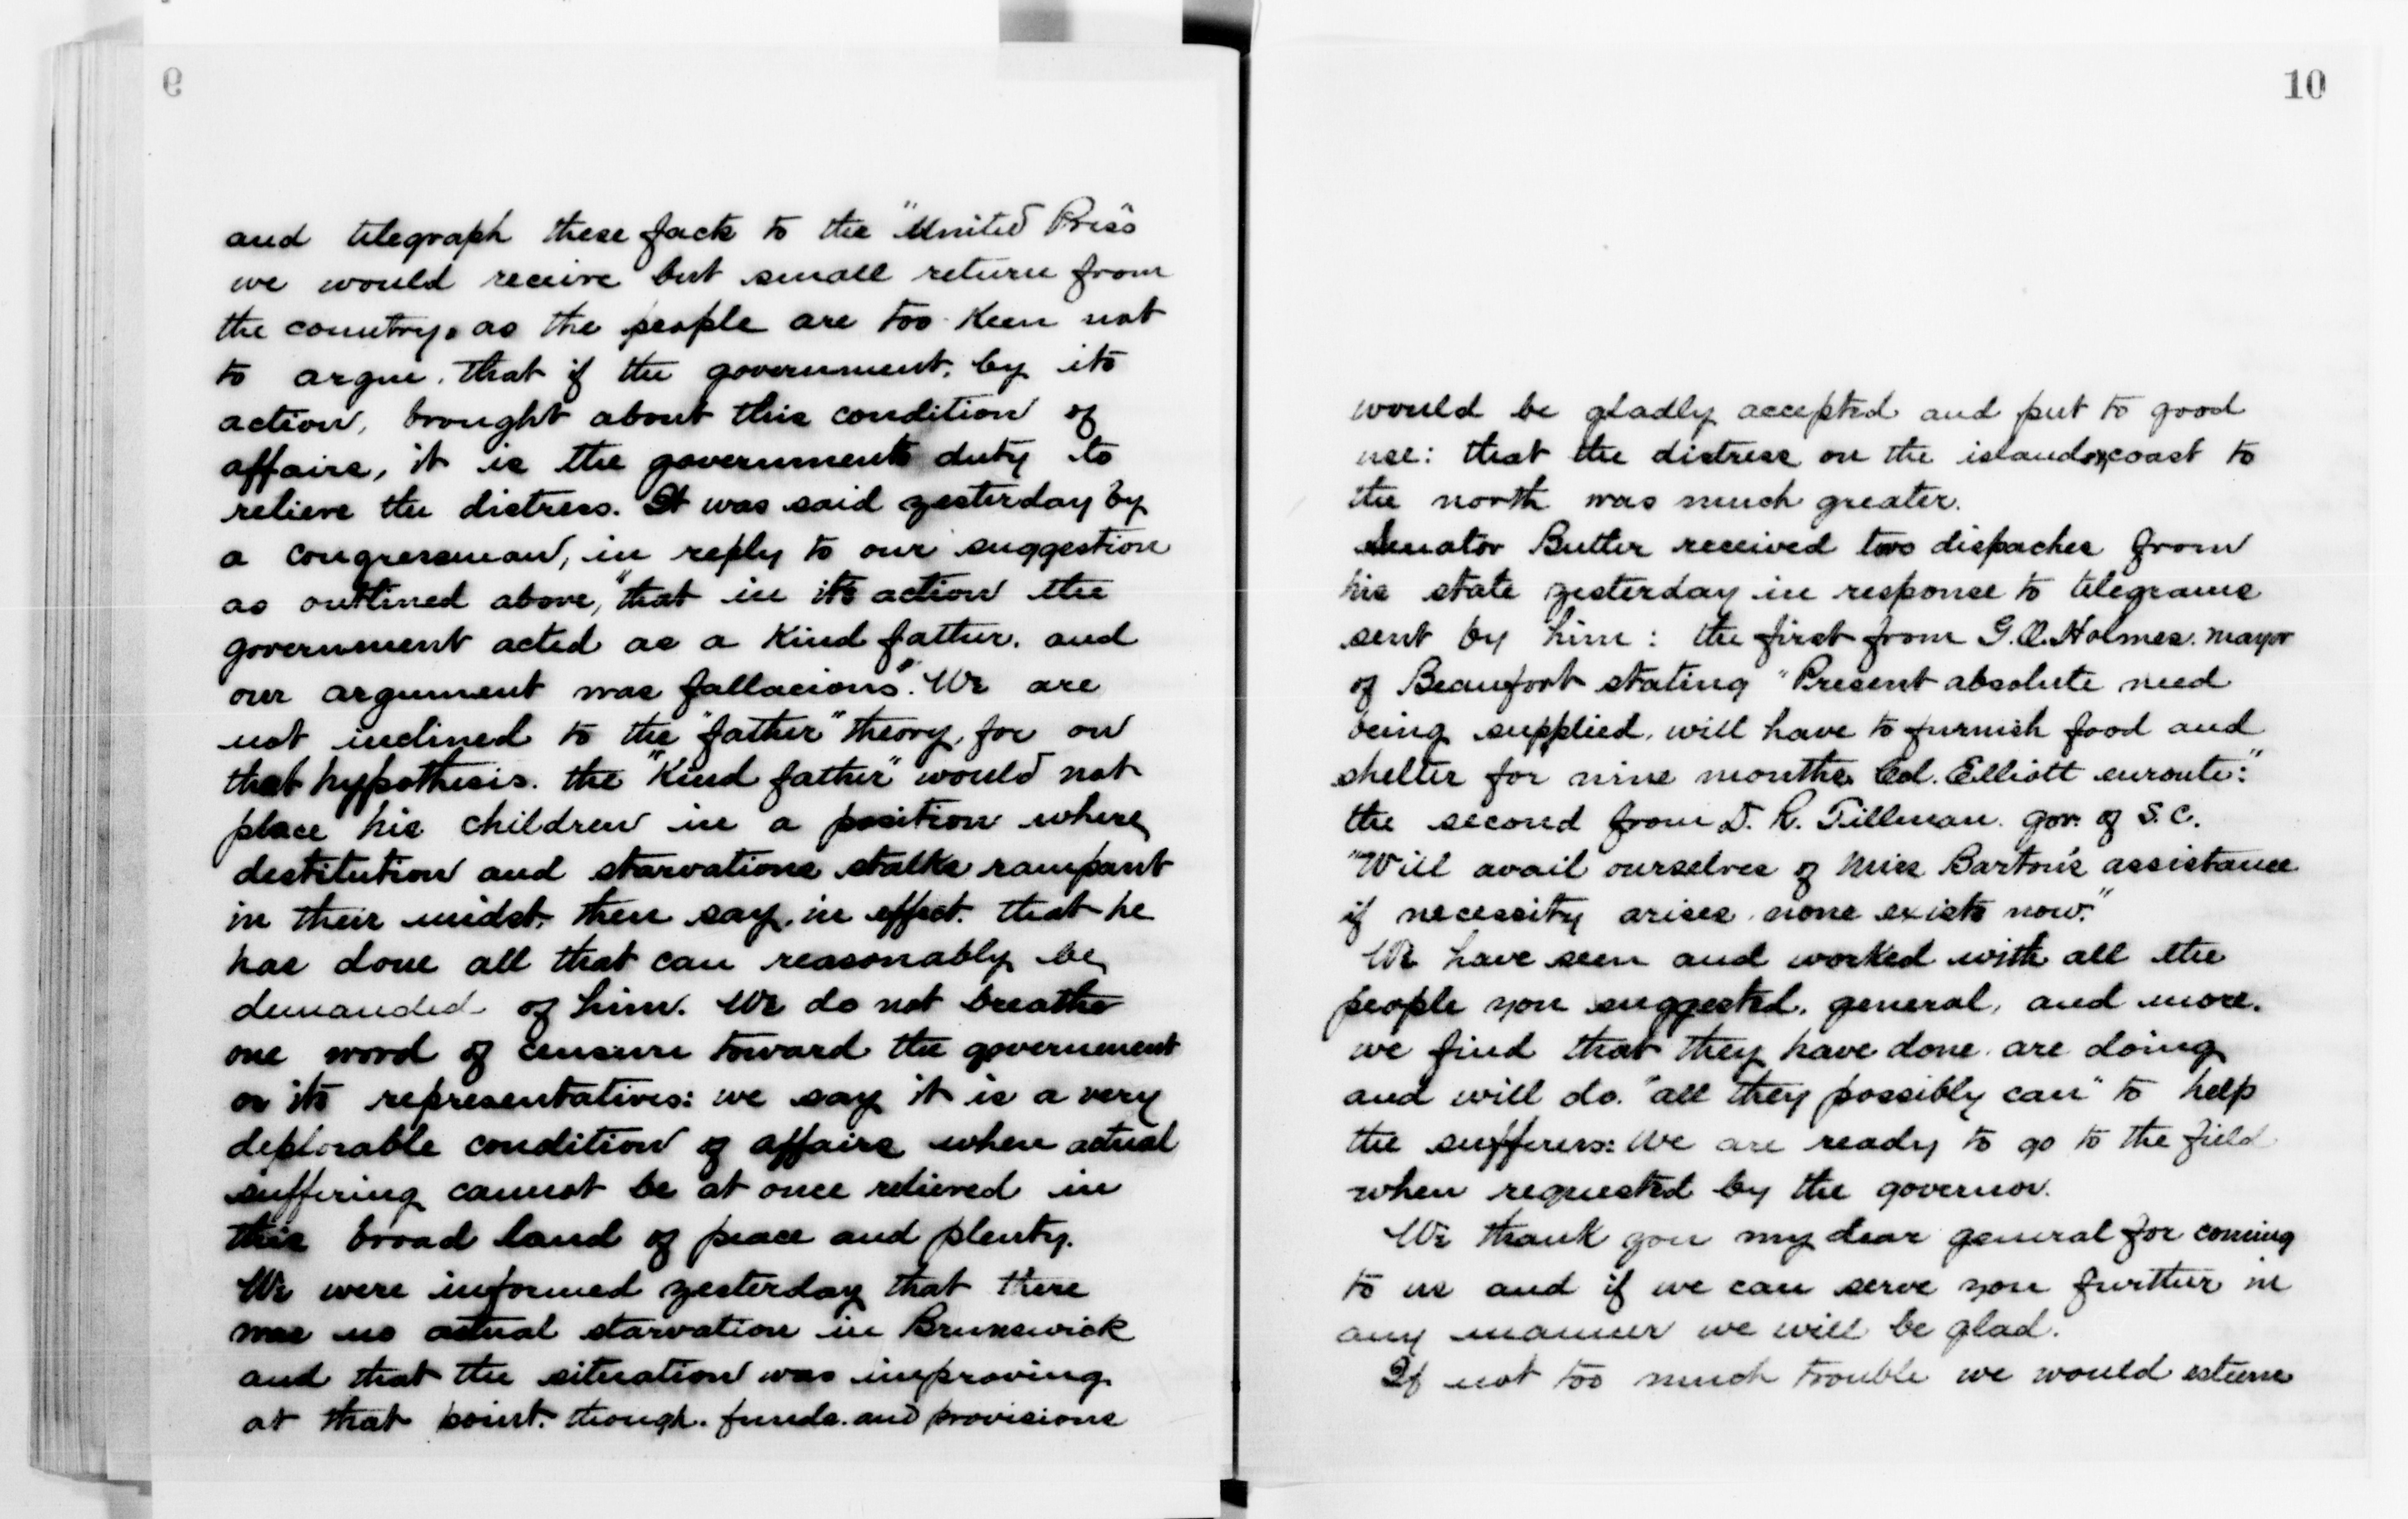 9
and telegraph these facts to the "United Press"
we would receive but small return from
the country, as the people are too keen not
to argue, that if the government, by its
action, brought about this condition of
affairs, it is the governments duty to
relieve the distress. It was said yesterday by
a congressman, in reply to our suggestion
as outlined above, "that in its action the
government acted as a kind father, and
our argument was fallacious". We are
not inclined to the "father" theory, for on
that hypothesis, the "Kind father" would not
place his children in a position where
destitution and starvations stalks rampant
in their midst, then say, in effect, that he
has done all that can reasonably be
demanded of him. We do not breathe
one word of censure toward the government
or its representatives: we say it is a very
deplorable condition of affairs when actual
suffering cannot be at once relieved in
this broad land of peace and plenty.
We were informed yesterday that there
was no actual starvation in Brunswick
and that the situation was improving
at that point, though, funds, and provisions
10
would be gladly accepted and put to good
use: that the distress on the islands & coast to
the north was much greater.
Senator Butler received two dispaches from
his state yesterday in response to telegrams
sent by him: the first from G. A. Holmes, mayor
of Beaufort stating "Present absolute need
being supplied, will have to furnish food and
shelter for nine months. Col. Elliott enroute:"
the second from D. R. Tillman, gov. of S. C.
"Will avail ourselves of Miss Barton's assistance
if necessity arises, none exists now."
We have seen and worked with all the
people you suggested, general, and more.
we find that they have done, are doing
and will do, "all they possibly can" to help
the sufferers: We are ready to go to the field
when requested by the governor.
We thank you my dear general for coming
to us and if we can serve you further in
any manner we will be glad.
If not too much trouble we would esteem